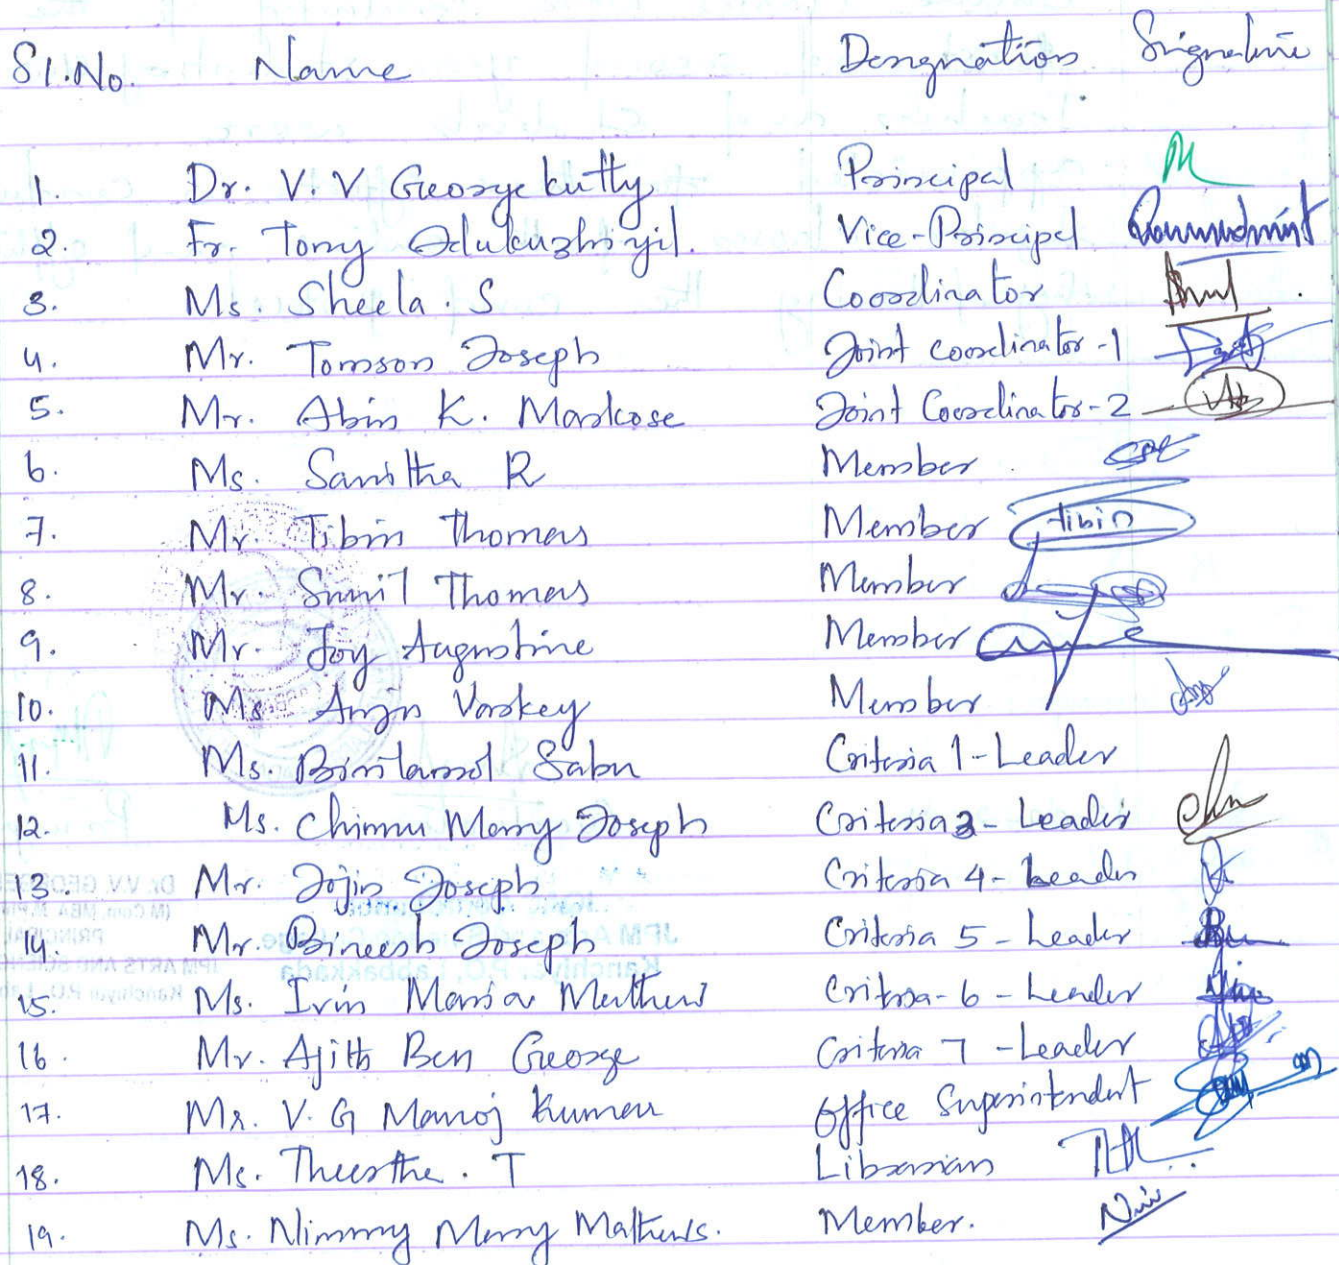 Sl.No. Name Designation Signature
1. Dr. V.V Georgekutty Principal
2. Fr. Tomy Adukuzhiyil. Vice-Principal
3. Ms. Sheela. S Coordinator
4. Mr. Tomson Joseph Joint coordinator-1
5. Mr. Abin K. Markose Joint Coordinator-2
6. Ms. Sanitha R Member
7. Mr. Tibin Thomas Member tibin
8. Mr. Sunil Thomas Member
9. Mr. Joy Augustine Member
10. Ms. Anju Varkey Member
11. Ms. Binilamol Sabu Criteria 1-Leader
12. Ms. Chinnu Mary Joseph Criteria 3- Leader
13. Mr. Jojin Joseph Criteria 4- Leader
14. Mr. Bineesh Joseph Criteria 5 - Leader
15. Ms. Irin Maria Mathew Criteria-6 - Leader
16. Mr. Ajith Ben George Criteria 7 -Leader
17. Mr. V. G Manoj Kumar Office Superintendent
18. Ms. Theertha. T Librarian
19. Ms. Nimmy Mary Mathews. Member.